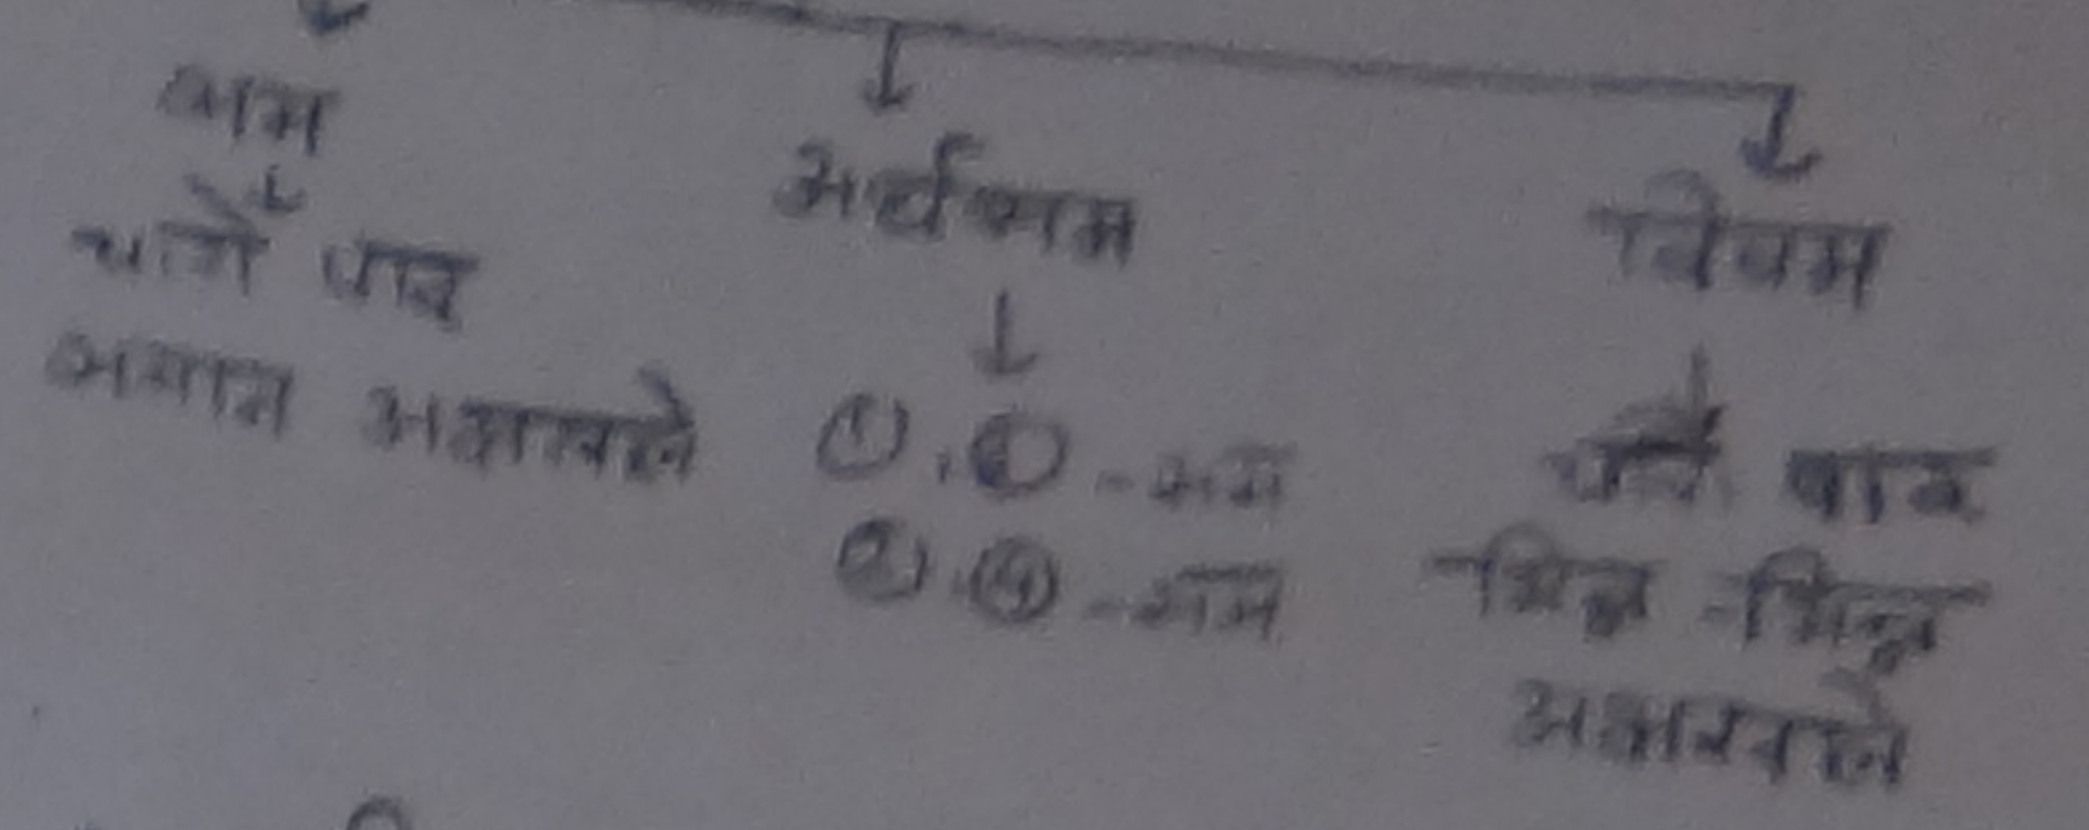 सम
चारों पाद
समान अक्षरवाले
अर्धसम
① , ③ - सम
② , ④ - सम
विषम
पाद
भिन्न - भिन्न
अक्षरवाले